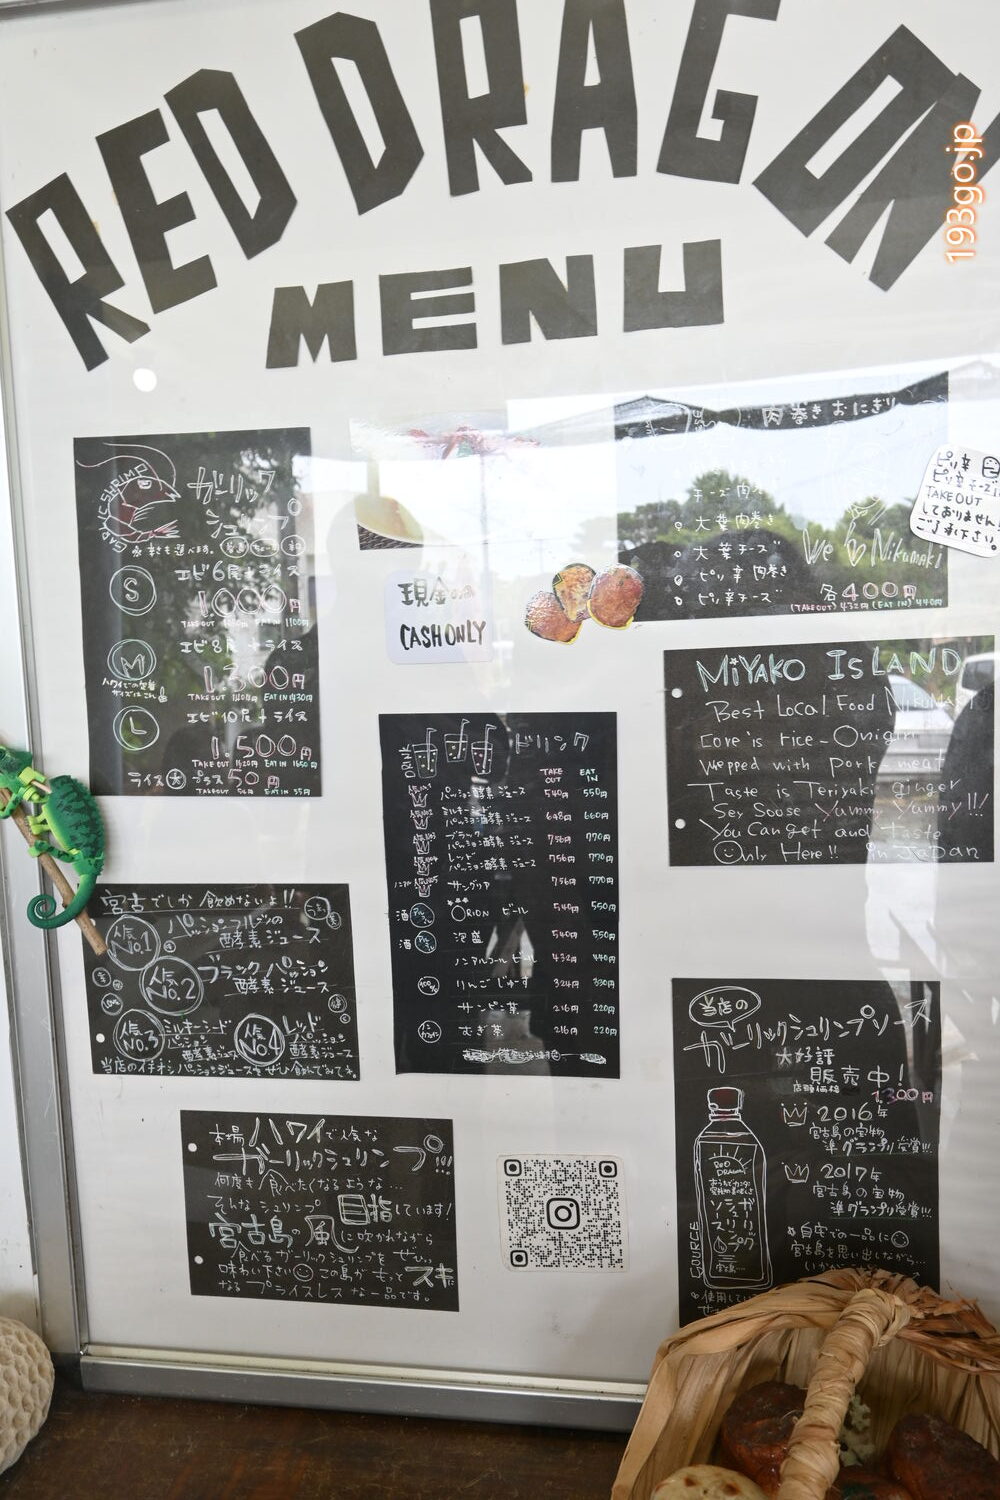 RED DRAGON
MENU
193go.jp
GARLIC SHRIMP
ガーリック
シュリンプ
辛さも選べます。
S
エビ6尾+ライス
1000円
TAKE OUT EAT IN 1100円
M
エビ8尾+ライス
1,300円
TAKEOUT EAT IN
L
エビ10尾+ライス
1,500円
TAKE OUT 1620円 EAT IN 1650円
ライス大 プラス50円
TAKEOUT 54円 EAT IN 55円
現金のみ
CASH ONLY
肉巻きおにぎり
チーズ肉巻き
大葉肉巻き
大葉チーズ
ピリ辛肉巻き
ピリ辛チーズ
We Nikumaki
各400円
(TAKEOUT) 432円 (EAT IN) 440円
ピリ辛
ピリ辛チーズは
TAKE OUT
しておりません!
ご了承下さい。
MiYAKO IsLAND
Best Local Food Nikumaki
Core is rice-Onigiri
wepped with pork-meat
Taste is Teriyaki ginger
Sey Soose Yummy Yummy!!!
You can get and taste
Only Here!! in Japan
DRINK
ドリンク
TAKE OUT EAT IN
パッション酵素ジュース 540円 550円
ミルキーシード
パッション酵素ジュース 648円 660円
ブラック
パッション酵素ジュース 756円 770円
レッド
パッション酵素ジュース 756円 770円
サングリア 756円 770円
酒 ORION ビール 540円 550円
酒 泡盛 540円 550円
ノンアルコールビール 432円 440円
100% りんごじゅーす 324円 330円
サンピン茶 216円 220円
むぎ茶 216円 220円
宮古でしか飲めないよ!!
人気No.1 パッションフルーツの
酵素ジュース
人気No.2 ブラックパッション
酵素ジュース
人気No.3 ミルキーシード
パッション
酵素ジュース
人気No.4 レッド
パッション
酵素ジュース
当店のイチオシパッションジュースをぜひ飲んでみてネ
本場ハワイで人気な
ガーリックシュリンプ!!!
何度も食べたくなるような…
そんなシュリンプ目指しています!
宮古島の風に吹かれながら
食べるガーリックシュリンプをぜひ。
味わい下さい この島がもっとスキ
なる プライスレスな一品です。
当店の
ガーリックシュリンプソース
大好評
販売中!
店頭価格
1,300円
2016年
宮古島の宝物
準グランプリ受賞!!!
2017年
宮古島の宝物
準グランプリ受賞!!!
自宅での一品に
宮古島を思い出しながら…
RED DRAGON
ガーリック
シュリンプ
ソース
SOURCE